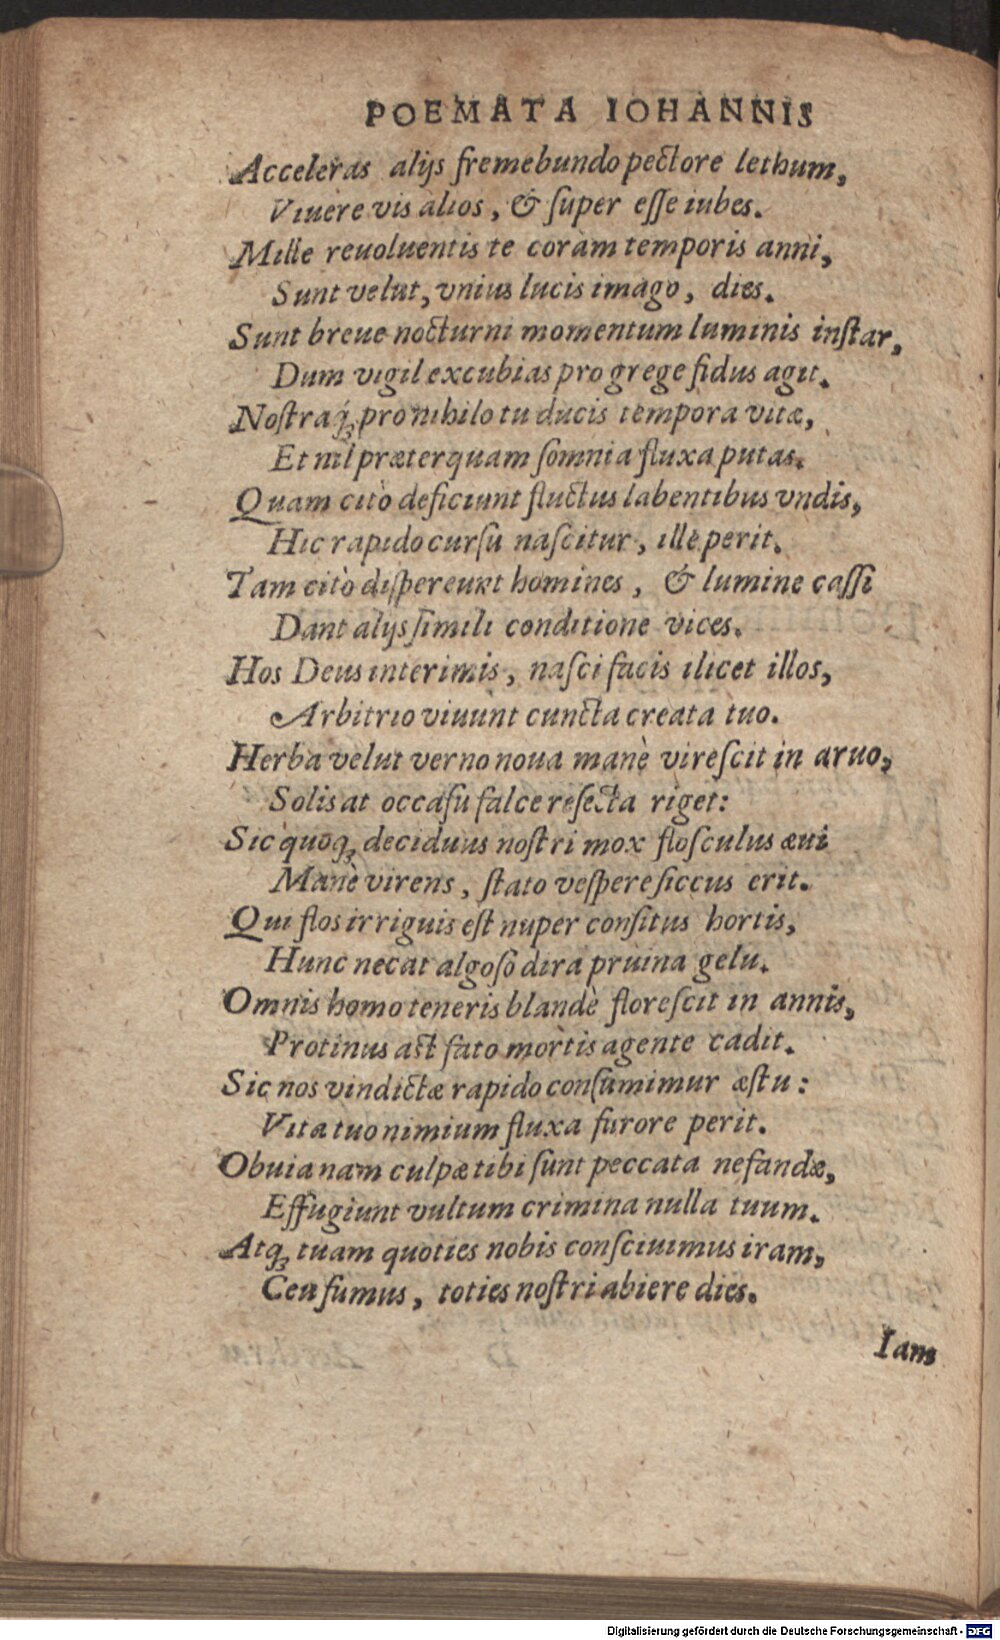 POEMATA IOHANNIS
Acceleras alijs fremebundo pectore lethum,
Viuere vis alios, & ſuper eſſe iubes.
Mille reuoluentis te coràm temporis anni,
Sunt velut, vnius lucis imago, dies.
Sunt breue nocturni momentum luminis inſtar,
Dum vigil excubias pro grege fidus agit.
Noſtraq́; pro nihilo tu ducis tempora vitæ,
Et nil præterquam ſomnia fluxa putas.
Quam citò deficiunt fluctus labentibus vndis,
Hic rapido curſu naſcitur, ille perit.
Tam citò diſpereunt homines, & lumine caſſi
Dant alijs ſimili conditione vices.
Hos Deus interimis, naſci facis ilicet illos,
Arbitrio viuunt cuncta creata tuo.
Herba velut verno noua manè vireſcit in aruo,
Solis at occaſu falce reſecta riget:
Sic quoq; deciduus noſtri mox floſculus æui
Manè virens, ſtato veſpere ſiccus erit.
Qui flos irriguis eſt nuper conſitus hortis,
Hunc necat algoſo dira pruina gelu.
Omnis homo teneris blandè floreſcit in annis,
Protinus aſt fato mortis agente cadit.
Sic nos vindictæ rapido conſumimur æſtu:
Vita tuo nimium fluxa furore perit.
Obuia nam culpæ tibi ſunt peccata nefandæ,
Effugiunt vultum crimina nulla tuum.
Atq; tuam quoties nobis conſciuimus iram,
Ceu fumus, toties noſtri abiere dies.
Iam
Digitalisierung gefördert durch die Deutsche Forschungsgemeinschaft - DFG